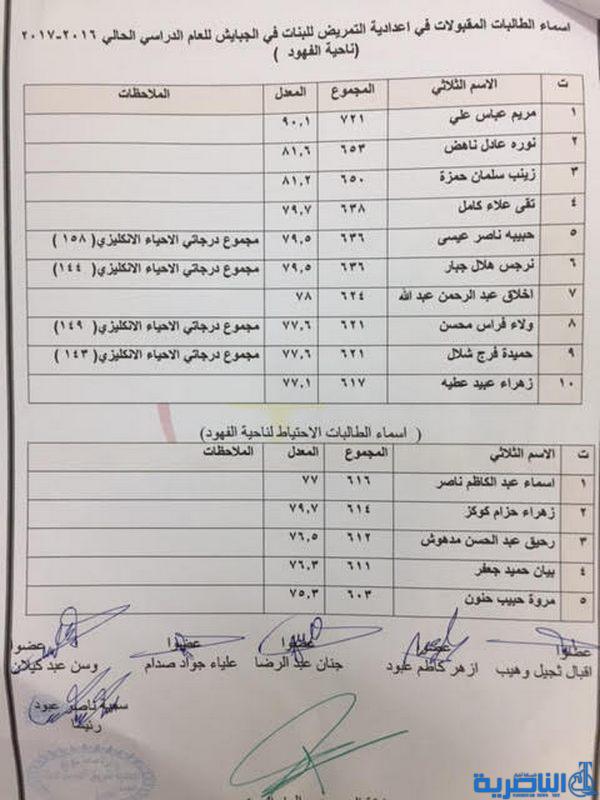 اسماء الطالبات المقبولات في اعدادية التمريض للبنات في الجبايش للعام الدراسي الحالي ٢٠١٦-٢٠١٧
(ناحية الفهود )
ت الاسم الثلاثي المجموع المعدل الملاحظات
١ مريم عباس علي ٧٢١ ٩٠,١
٢ نوره عادل ناهض ٦٥٣ ٨١,٦
٣ زينب سلمان حمزة ٦٥٠ ٨١,٢
٤ تقى علاء كامل ٦٣٨ ٧٩,٧
٥ حبيبه ناصر عيسى ٦٣٦ ٧٩,٥ مجموع درجاتي الاحياء الانكليزي( ١٥٨ )
٦ نرجس هلال جبار ٦٣٦ ٧٩,٥ مجموع درجاتي الاحياء الانكليزي( ١٤٤ )
٧ اخلاق عبد الرحمن عبد الله ٦٢٤ ٧٨
٨ ولاء فراس محسن ٦٢١ ٧٧,٦ مجموع درجاتي الاحياء الانكليزي( ١٤٩ )
٩ حميدة فرج شلال ٦٢١ ٧٧,٦ مجموع درجاتي الاحياء الانكليزي( ١٤٣ )
١٠ زهراء عبيد عطيه ٦١٧ ٧٧,١
( اسماء الطالبات الاحتياط لناحية الفهود)
ت الاسم الثلاثي المجموع المعدل الملاحظات
١ اسماء عبد الكاظم ناصر ٦١٦ ٧٧
٢ زهراء حزام كوكز ٦١٤ ٧٩,٧
٣ رحيق عبد الحسن مدهوش ٦١٢ ٧٦,٥
٤ بيان حميد جعفر ٦١١ ٧٦,٣
٥ مروة حبيب حنون ٦٠٣ ٧٥,٣
عضوا عضوا عضوا عضوا عضوا
اقبال ثجيل وهيب ازهر كاظم عبود جنان عبد الرضا علياء جواد صدام وسن عبد كيلان
سمية ناصر عبود
رئيسا
الناصرية